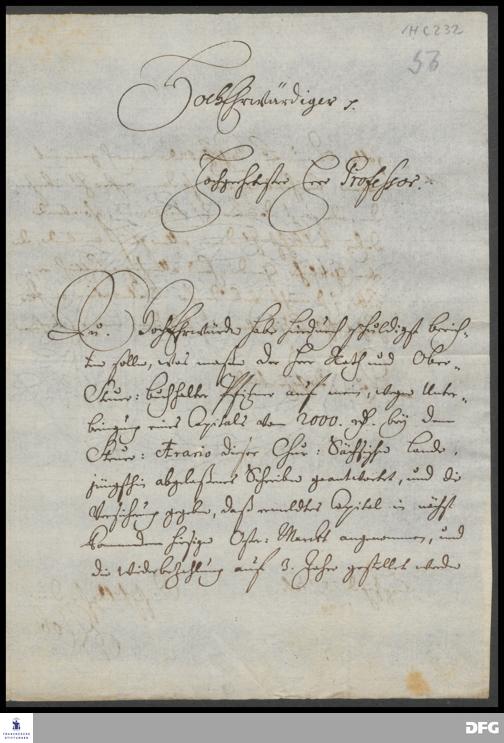 HC232
56
HochEhrwürdiger p.
Hochgeehrtester Herr Professor.
Eu. HochEhrwürde habe hiedurch schuldigst berich-
ten sollen, was maßen der Herr Rath und Ober-
Steuer: buchhalter Pfitzner auf mein, wegen Unter-
bringung eines Capitals von 2000. rthl. bey dem
Steuer: Aerario dieser Chur: Sächsischen Lande,
jüngsthin abgelaßenes Schreiben geantwortet, und die
Versicherung gegeben, daß ermeldtes Capital in nächst
kommenden hiesigen Oster: Marckt angenommen, und
die wiederbezahlung auf 3. Jahre gestellet werden
FRANCKESCHE
STIFTUNGEN
DFG